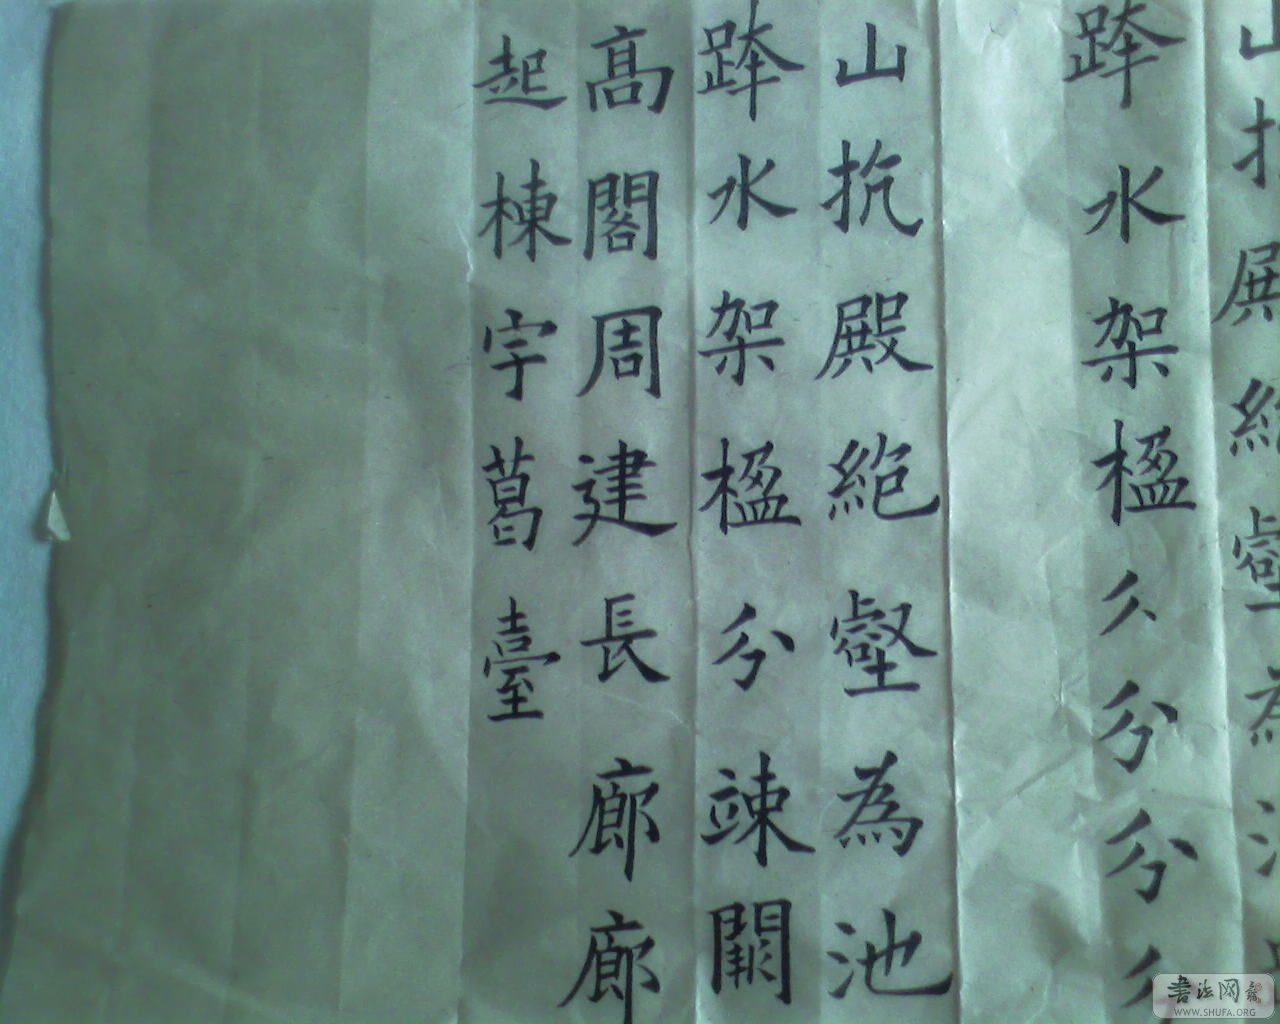 山
跸水架楹分分分
山抗殿絶壑為池
跸水架楹分竦闕
高閣周建長廊廊
起棟宇葛臺
書法网
WWW.SHUFA.ORG